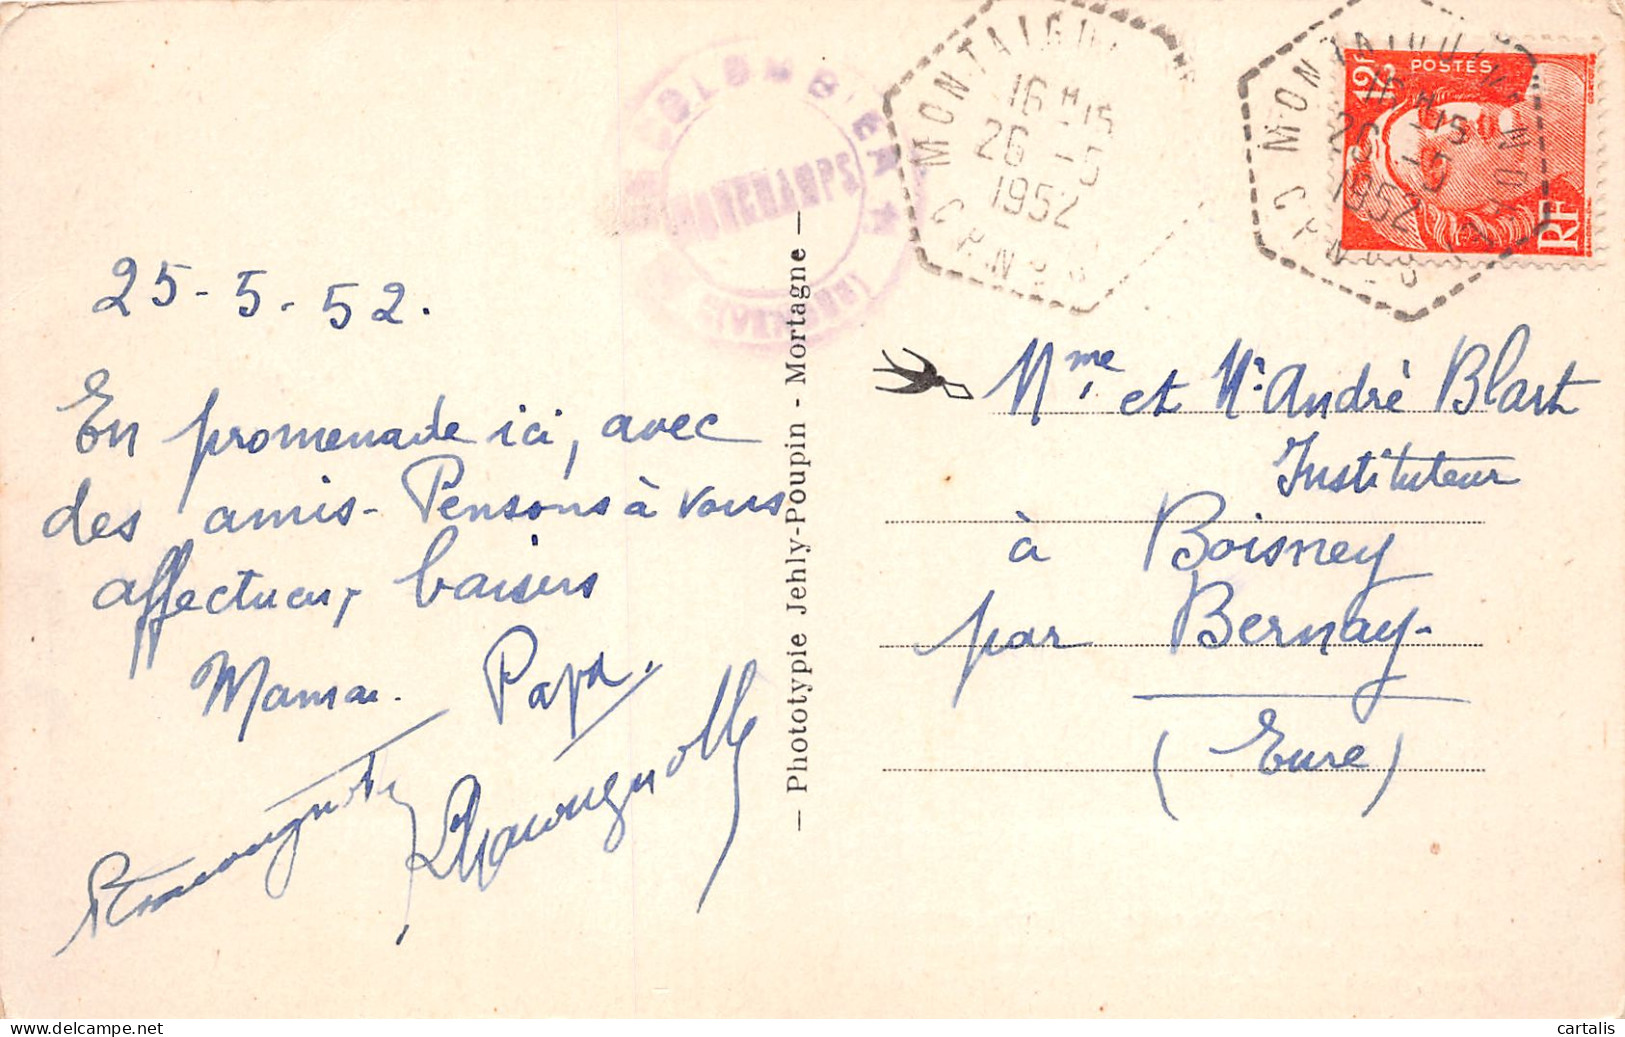 MONTAIGU
16 H 15
26 - 5
1952
MONTAIGU
16 H 15
26 - 5
1952
12F
POSTES
RF
25-5-52.
En promenade ici, avec
des amis - Pensons à vous
affectueux baisers
Maman. Papa.
— Phototypie Jehly-Poupin - Mortagne —
Mme et Mr André Blart
Instituteur
à Boisney
par Bernay-
(Eure)
cartalis
www.delcampe.net